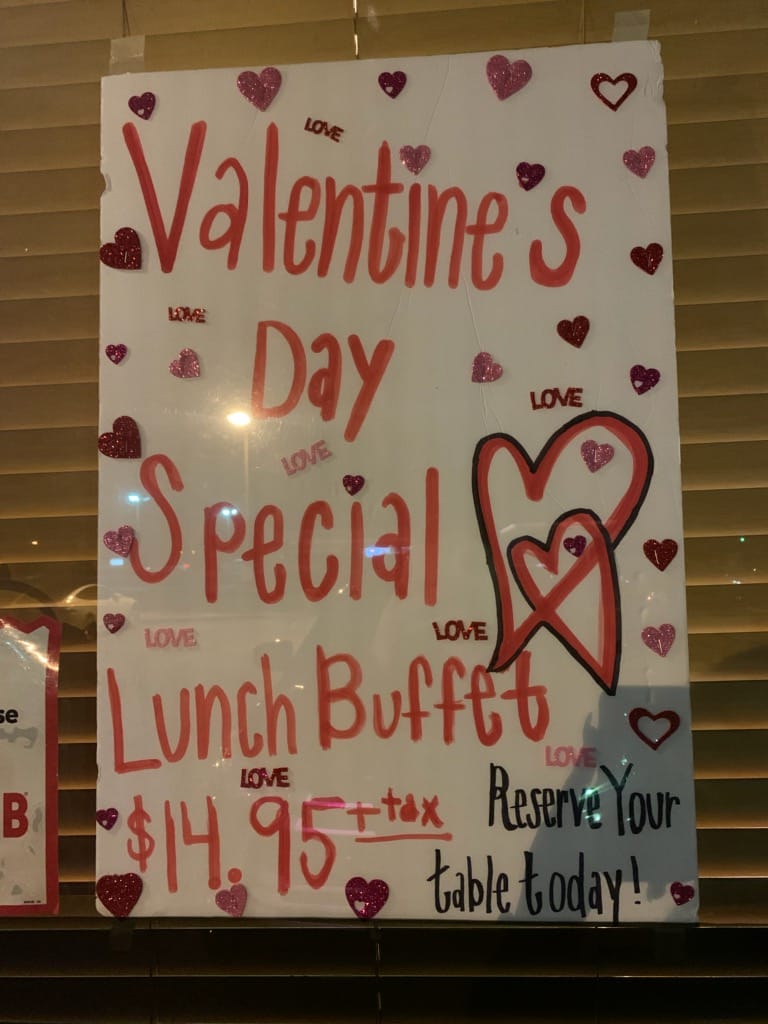 LOVE
Valentine's
LOVE
Day
LOVE
LOVE
Special
LOVE
LOVE
Lunch Buffet
LOVE
LOVE
$14.95 + tax
Reserve Your
table today!
se
B